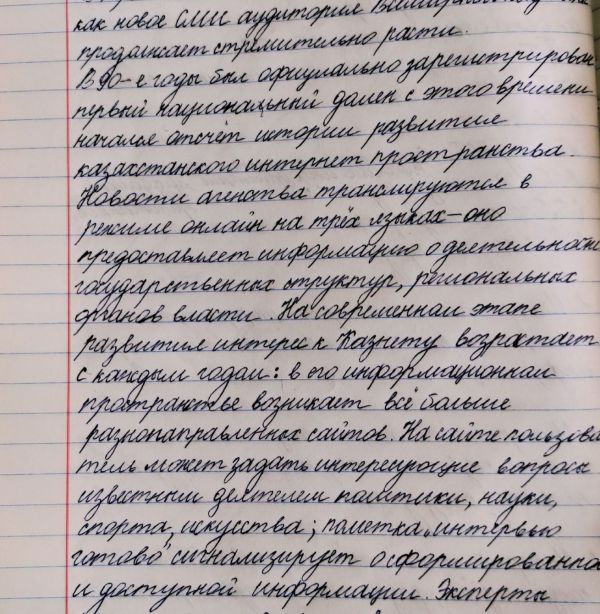 как новое СМИ аудитория
продолжает стремительно расти.
В 90-е годы был официально зарегистрирован
первый национальный домен с этого времени
начался отсчёт истории развития
казахстанского интернет пространства.
Новости агенства транслируются в
режиме онлайн на трёх языках – оно
предоставляет информацию о деятельности
государственных структур, региональных
органов власти. На современном этапе
развития интерес к Казнету возрастает
с каждым годом: в его информационном
пространстве возникает всё больше
разнонаправленных сайтов. На сайте пользова
тель может задать интересующие вопросы
известным деятелем политики, науки,
спорта, искусства; пометка „интервью
готово" сигнализирует о сформированно
и доступной информации. Эксперты